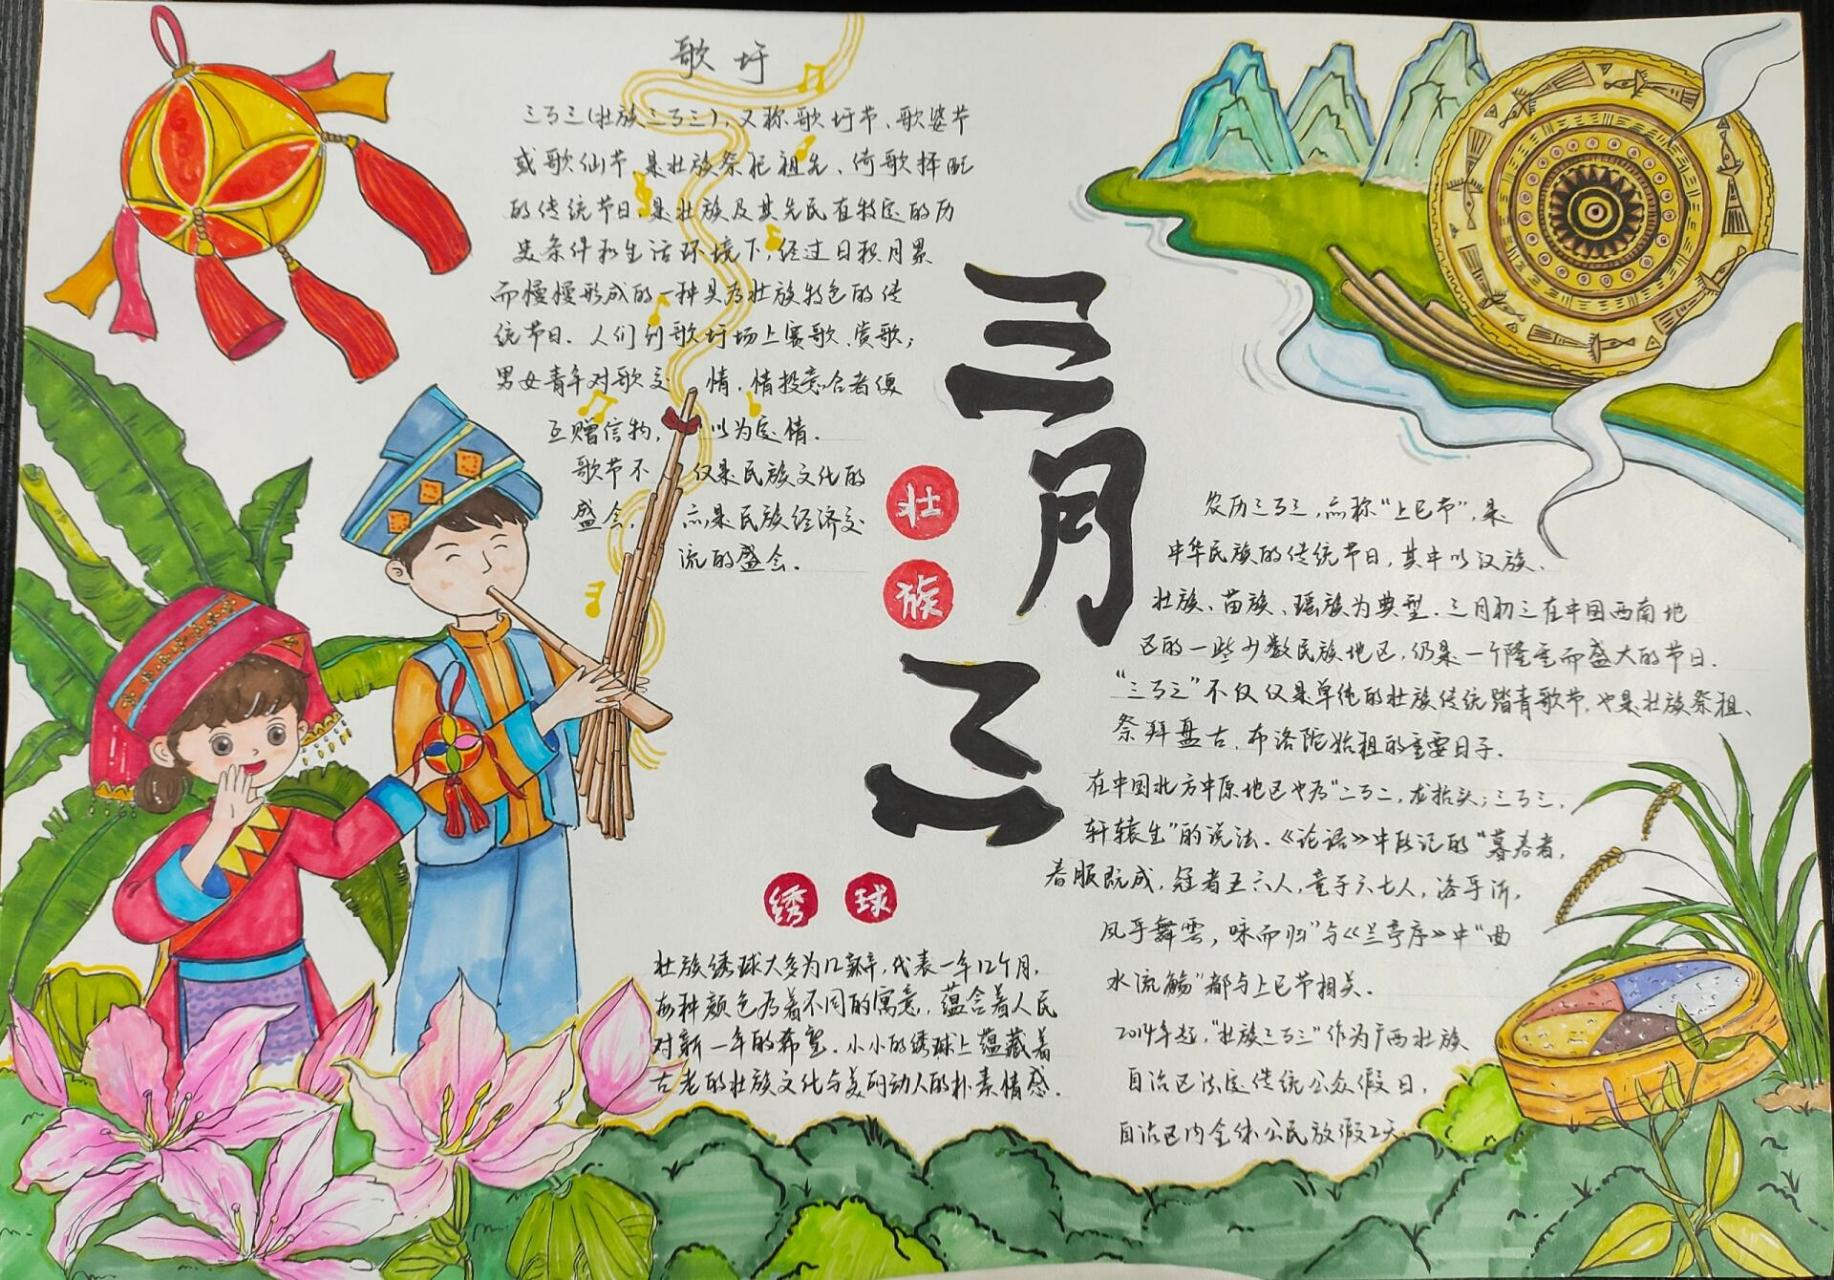 歌圩
三月三(壮族三月三),又称歌圩节、歌婆节
或歌仙节,是壮族祭祀祖先、倚歌择配
的传统节日,是壮族及其先民在特定的历
史条件和生活环境下,经过日积月累
而慢慢形成的一种具有壮族特色的传
统节日.人们到歌圩场上赛歌、赏歌;
男女青年对歌交情,情投意合者便
互赠信物,以为定情.
歌节不仅是民族文化的
盛会,亦是民族经济交
流的盛会.
三月三
壮族
农历三月三,亦称“上巳节”,是
中华民族的传统节日,其中以汉族、
壮族、苗族、瑶族为典型.三月初三在中国西南地
区的一些少数民族地区,仍是一个隆重而盛大的节日.
“三月三”不仅仅是单纯的壮族传统踏青歌节,也是壮族祭祖、
祭拜盘古,布洛陀始祖的重要日子.
在中国北方中原地区也有“二月二,龙抬头;三月三,
轩辕生”的说法.《论语》中所记的“暮春者,
春服既成,冠者五六人,童子六七人,浴乎沂,
风乎舞雩,咏而归”与《兰亭序》中“曲
水流觞”都与上巳节相关.
2014年起,“壮族三月三”作为广西壮族
自治区法定传统公众假日,
自治区内全体公民放假2天
绣球
壮族绣球大多为12瓣,代表一年12个月,
每种颜色有着不同的寓意,蕴含着人民
对新一年的希望.小小的绣球上蕴藏着
古老的壮族文化与美丽动人的朴素情感.